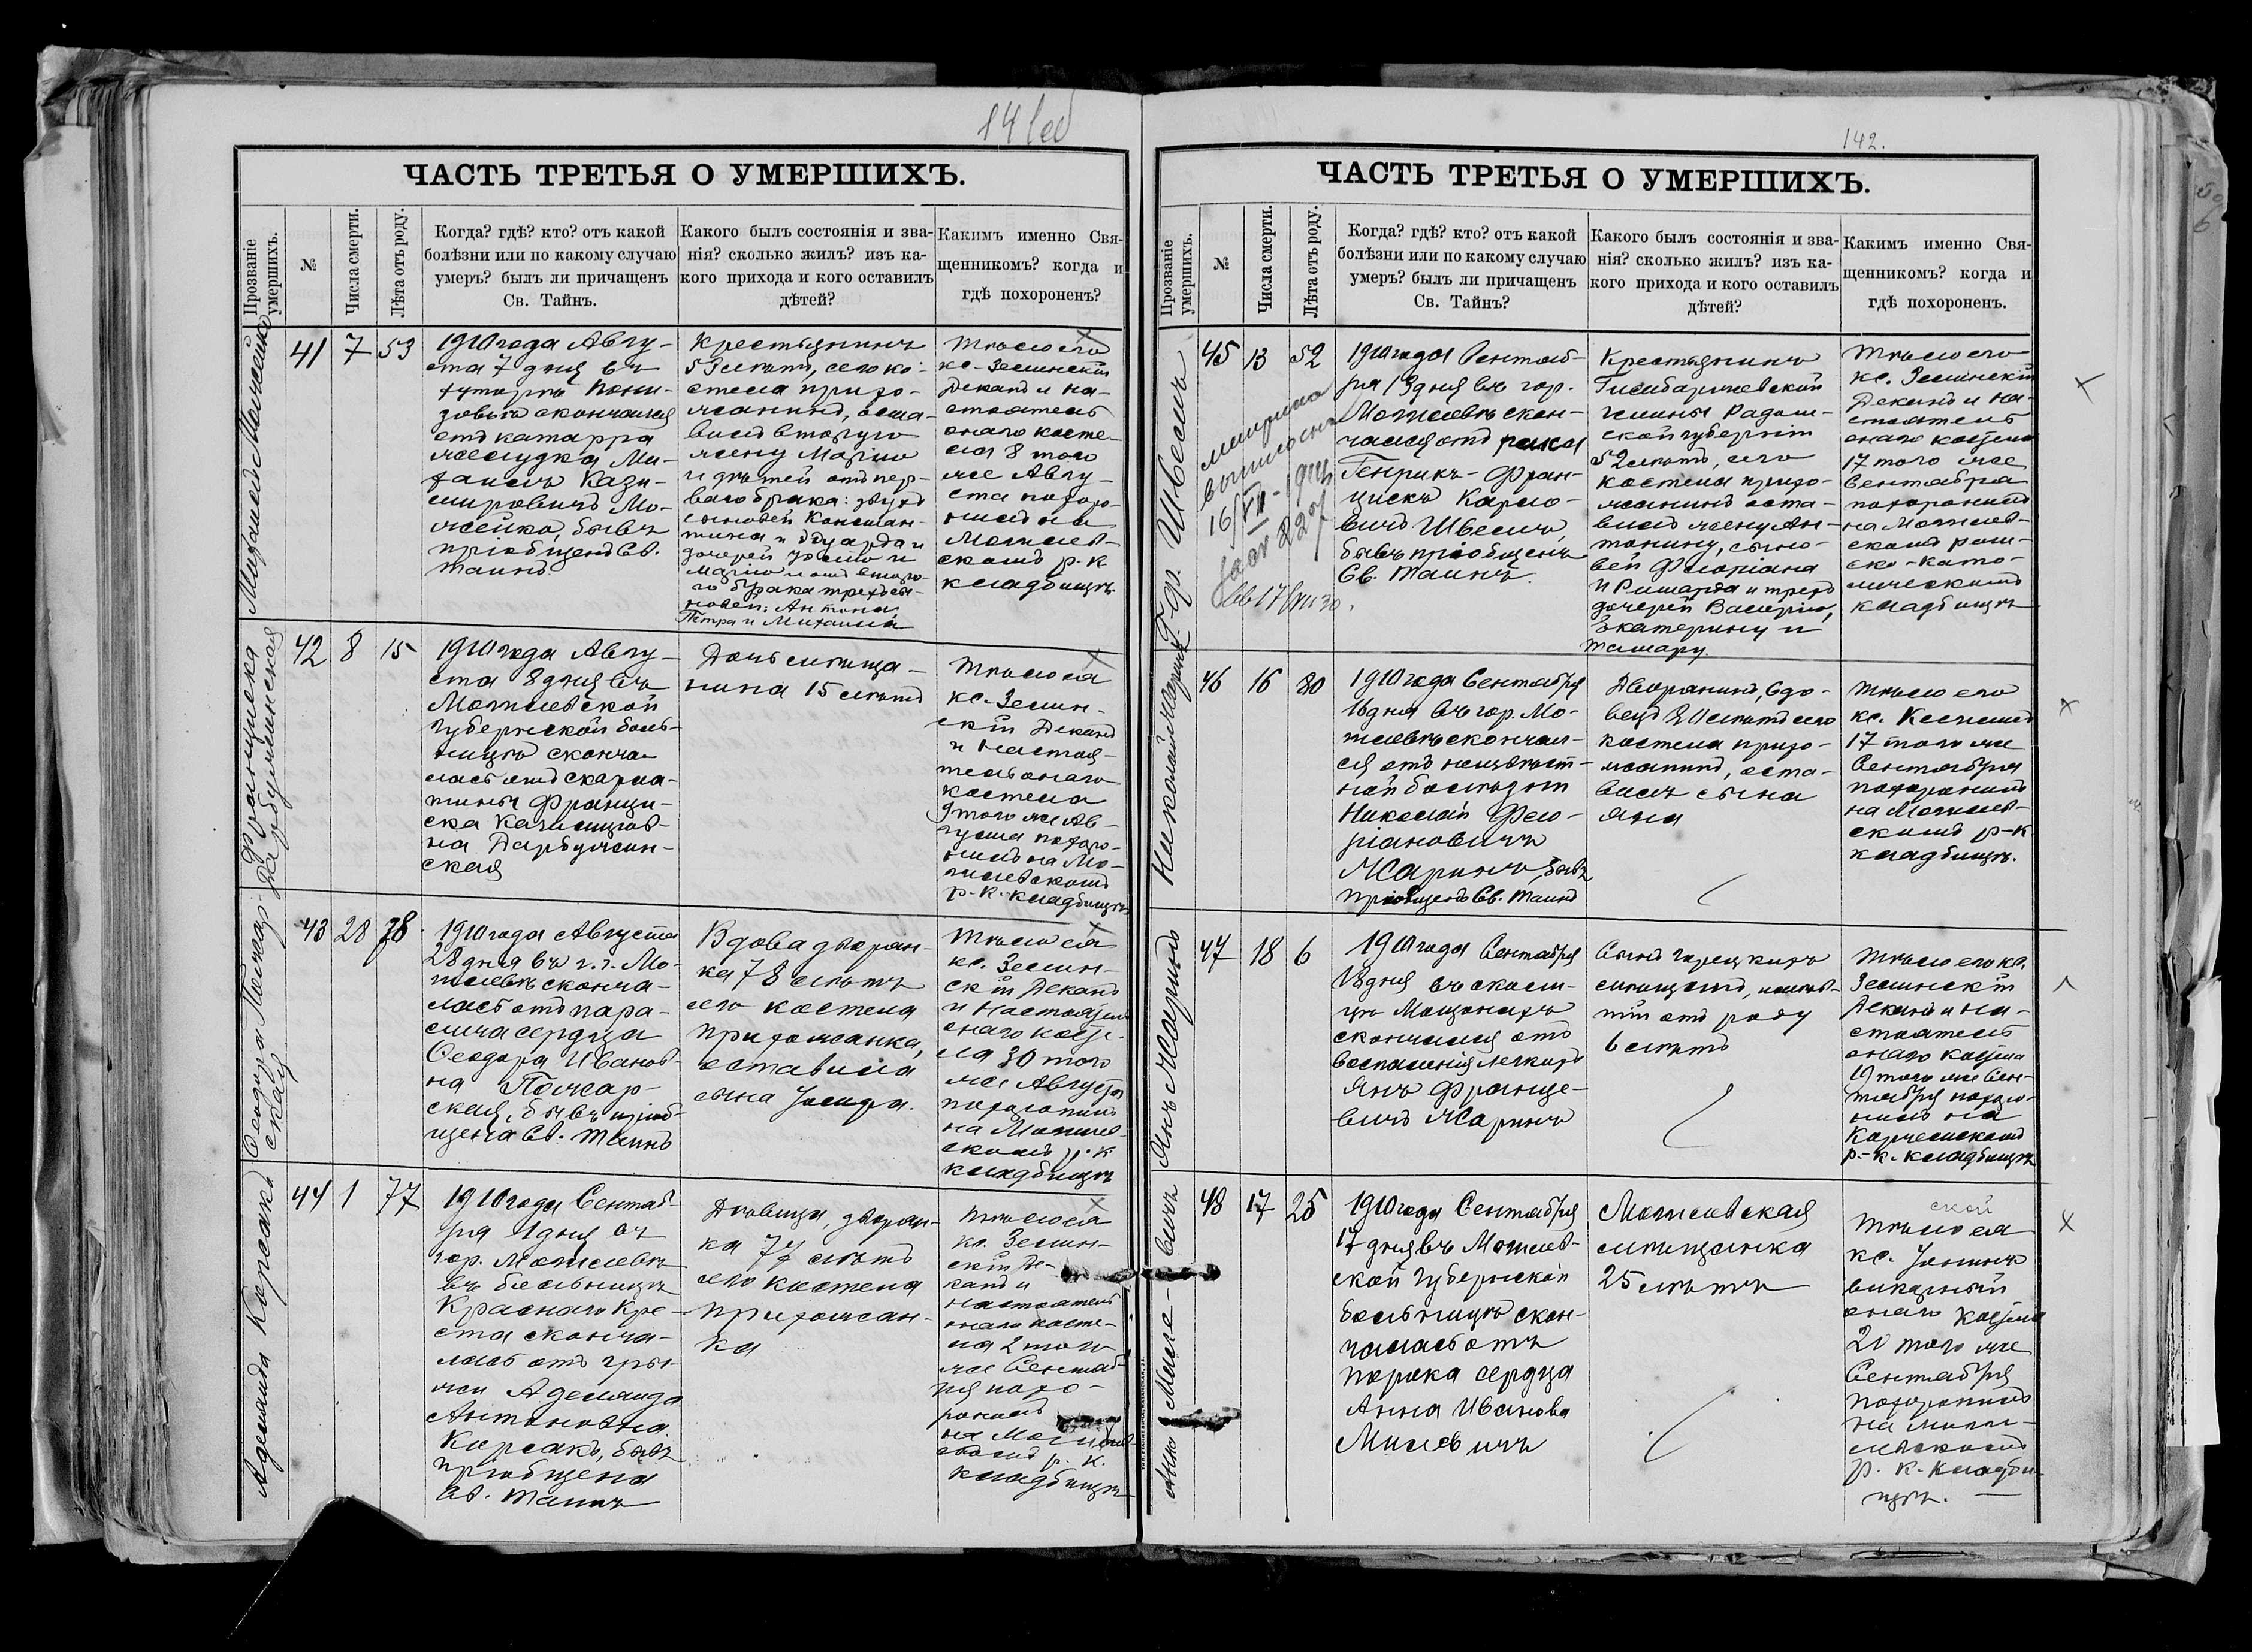 141об
ЧАСТЬ ТРЕТЬЯ О УМЕРШИХЪ.
Прозваніе умершихъ.
№
Числа смерти.
Лѣта отъ роду.
Когда? гдѣ? кто? отъ какой
болѣзни или по какому случаю
умеръ? былъ ли причащенъ
Св. Тайнъ.
Какого былъ состоянія и зва-
нія? сколько жилъ? изъ ка-
кого прихода и кого оставилъ
дѣтей?
Какимъ именно Свя-
щенникомъ? когда и
гдѣ похороненъ?
Михаилъ Можейко
41
7
53
1910 года Авгу-
ста 7 дня въ
хуторѣ Пони-
зовьѣ скончался
отъ катарра
желудка Ми-
хаилъ Кази-
мировичъ Мо-
жейко, бывъ
пріобщенъ Св.
Таинъ.
Крестьянинъ
53 лѣтъ, сего ко-
стела прихо-
жанинъ, оста-
вилъ вторую
жену Марію
и дѣтей отъ пер-
ваго брака: двухъ
сыновей Констан-
тина и Эдуарда и
дочерей Юзефу и
Марію и отъ второ-
го брака трехъ сы-
новей: Антона,
Петра и Михаила
Тѣло его
кс. Зелинскій
Деканъ и На-
стоятель
онаго косте-
ла 8 того
же Авгу-
ста похоро-
нилъ на
Могилев-
скомъ р. к
кладбищѣ.
Франциска
Дарбужинская
42
8
15
1910 года Авгу-
ста 8 дня въ
Могилевской
губернской боль-
ницѣ сконча-
лась отъ скарла-
тины Франци-
ска Казимиров-
на Дарбужин-
ская
Дочь мѣща-
нина 15 лѣтъ
Тѣло ея
кс. Зелин-
скій Деканъ
и Настоя-
тель онаго
костела
9 того же Ав-
густа похоро-
нилъ на Мо-
гилевскомъ
р.-к. кладбищѣ
Ѳеодора Пожар-
ская
43
28
78
1910 года Августа
28 дня въ г. г. Мо-
гилевѣ сконча-
лась отъ пара-
лича сердца
Ѳеодора Иванов-
на Пожар-
ская, бывъ пріоб-
щена Св. Таинъ
Вдова дворян-
ка 78 лѣтъ
сего костела
прихожанка,
оставила
сына Іосифа.
Тѣло ея
кс. Зелин-
скій Деканъ
и Настоятель
онаго косте-
ла 30 того
же Августа
похоронилъ
на Могилев-
скомъ р. к
кладбищѣ
Аделаида Корсакъ
44
1
77
1910 года Сентяб-
ря 1 дня въ
гор. Могилевѣ
въ больницѣ
Краснаго Кре-
ста сконча-
лась отъ гры-
жи Аделаида
Антоновна
Корсакъ, бывъ
пріобщена
Св. Таинъ
Дѣвица, дворян-
ка 77 лѣтъ
сего костела
прихожан-
ка
Тѣло ея
кс. Зелин-
скій Де-
канъ и
настоятель
онаго косте-
ла 2 того
же Сентяб-
ря похо-
ронилъ
на Могилев-
скомъ р. к.
кладбищѣ
142.
ЧАСТЬ ТРЕТЬЯ О УМЕРШИХЪ.
Прозваніе умершихъ.
№
Числа смерти.
Лѣта отъ роду.
Когда? гдѣ? кто? отъ какой
болѣзни или по какому случаю
умеръ? былъ ли причащенъ
Св. Тайнъ?
Какого былъ состоянія и зва-
нія? сколько жилъ? изъ ка-
кого прихода и кого оставилъ
дѣтей?
Какимъ именно Свя-
щенникомъ? когда и
гдѣ похороненъ.
Г. Фр. Швелихъ
45
13
52
метрика
выписана
16/VII-1914
1910 года Сентяб-
ря 13 дня въ гор.
Могилевѣ скон-
чался отъ рака
Генрикъ-Фран-
цискъ Карло-
вичъ Швелихъ,
бывъ пріобщенъ
Св. Таинъ.
Крестьянинъ
гмины Радом-
ской губерніи
52 лѣтъ, сего
костела прихо-
жанинъ оста-
вилъ жену Ан-
тонину, сыно-
вей Флоріана
и Ришарда и трехъ
дочерей Валерію,
Екатерину и
Тамару.
Тѣло его
кс. Зелинскій
Деканъ и На-
стоятель
онаго костела
17 того же
Сентября
похоронилъ
на Могилев-
скомъ рим-
ско-като-
лическомъ
кладбищѣ
Николай Жаринъ
46
16
80
1910 года Сентября
16 дня въ гор. Мо-
гилевѣ скончал-
ся отъ неизвѣст-
ной болѣзни
Николай Фло-
ріановичъ
Жаринъ, бывъ
пріобщенъ Св. Таинъ
Дворянинъ, вдо-
вецъ 80 лѣтъ сего
костела прихо-
жанинъ, оста-
вилъ сына
Яна
Тѣло его
кс.
17 того же
Сентября
похоронилъ
на Могилев-
скомъ р-к
кладбищѣ.
Янъ Жаринъ
47
18
6
1910 года Сентября
18 дня въ
скончался отъ
воспаленія легкихъ
Янъ Францe-
вичъ Жаринъ
Сынъ
мѣщанъ,
отъ роду
6 лѣтъ
Тѣло его кс.
Зелинскій
Деканъ и На-
стоятель
онаго костела
19 того же Сен-
тября похоро-
нилъ на
р.-к. кладбищѣ
Анна Миле-
вичъ
48
17
25
1910 года Сентября
17 дня въ Могилев-
ской губернской
больницѣ скон-
чалась отъ
порока сердца
Анна Иванова
Милевичъ
Могилевская
мѣщанка
25 лѣтъ
Тѣло ея
кс.
викарный
онаго костела
20 того же
Сентября
похоронилъ
на Моги-
левскомъ
р. к. кладби-
щѣ.